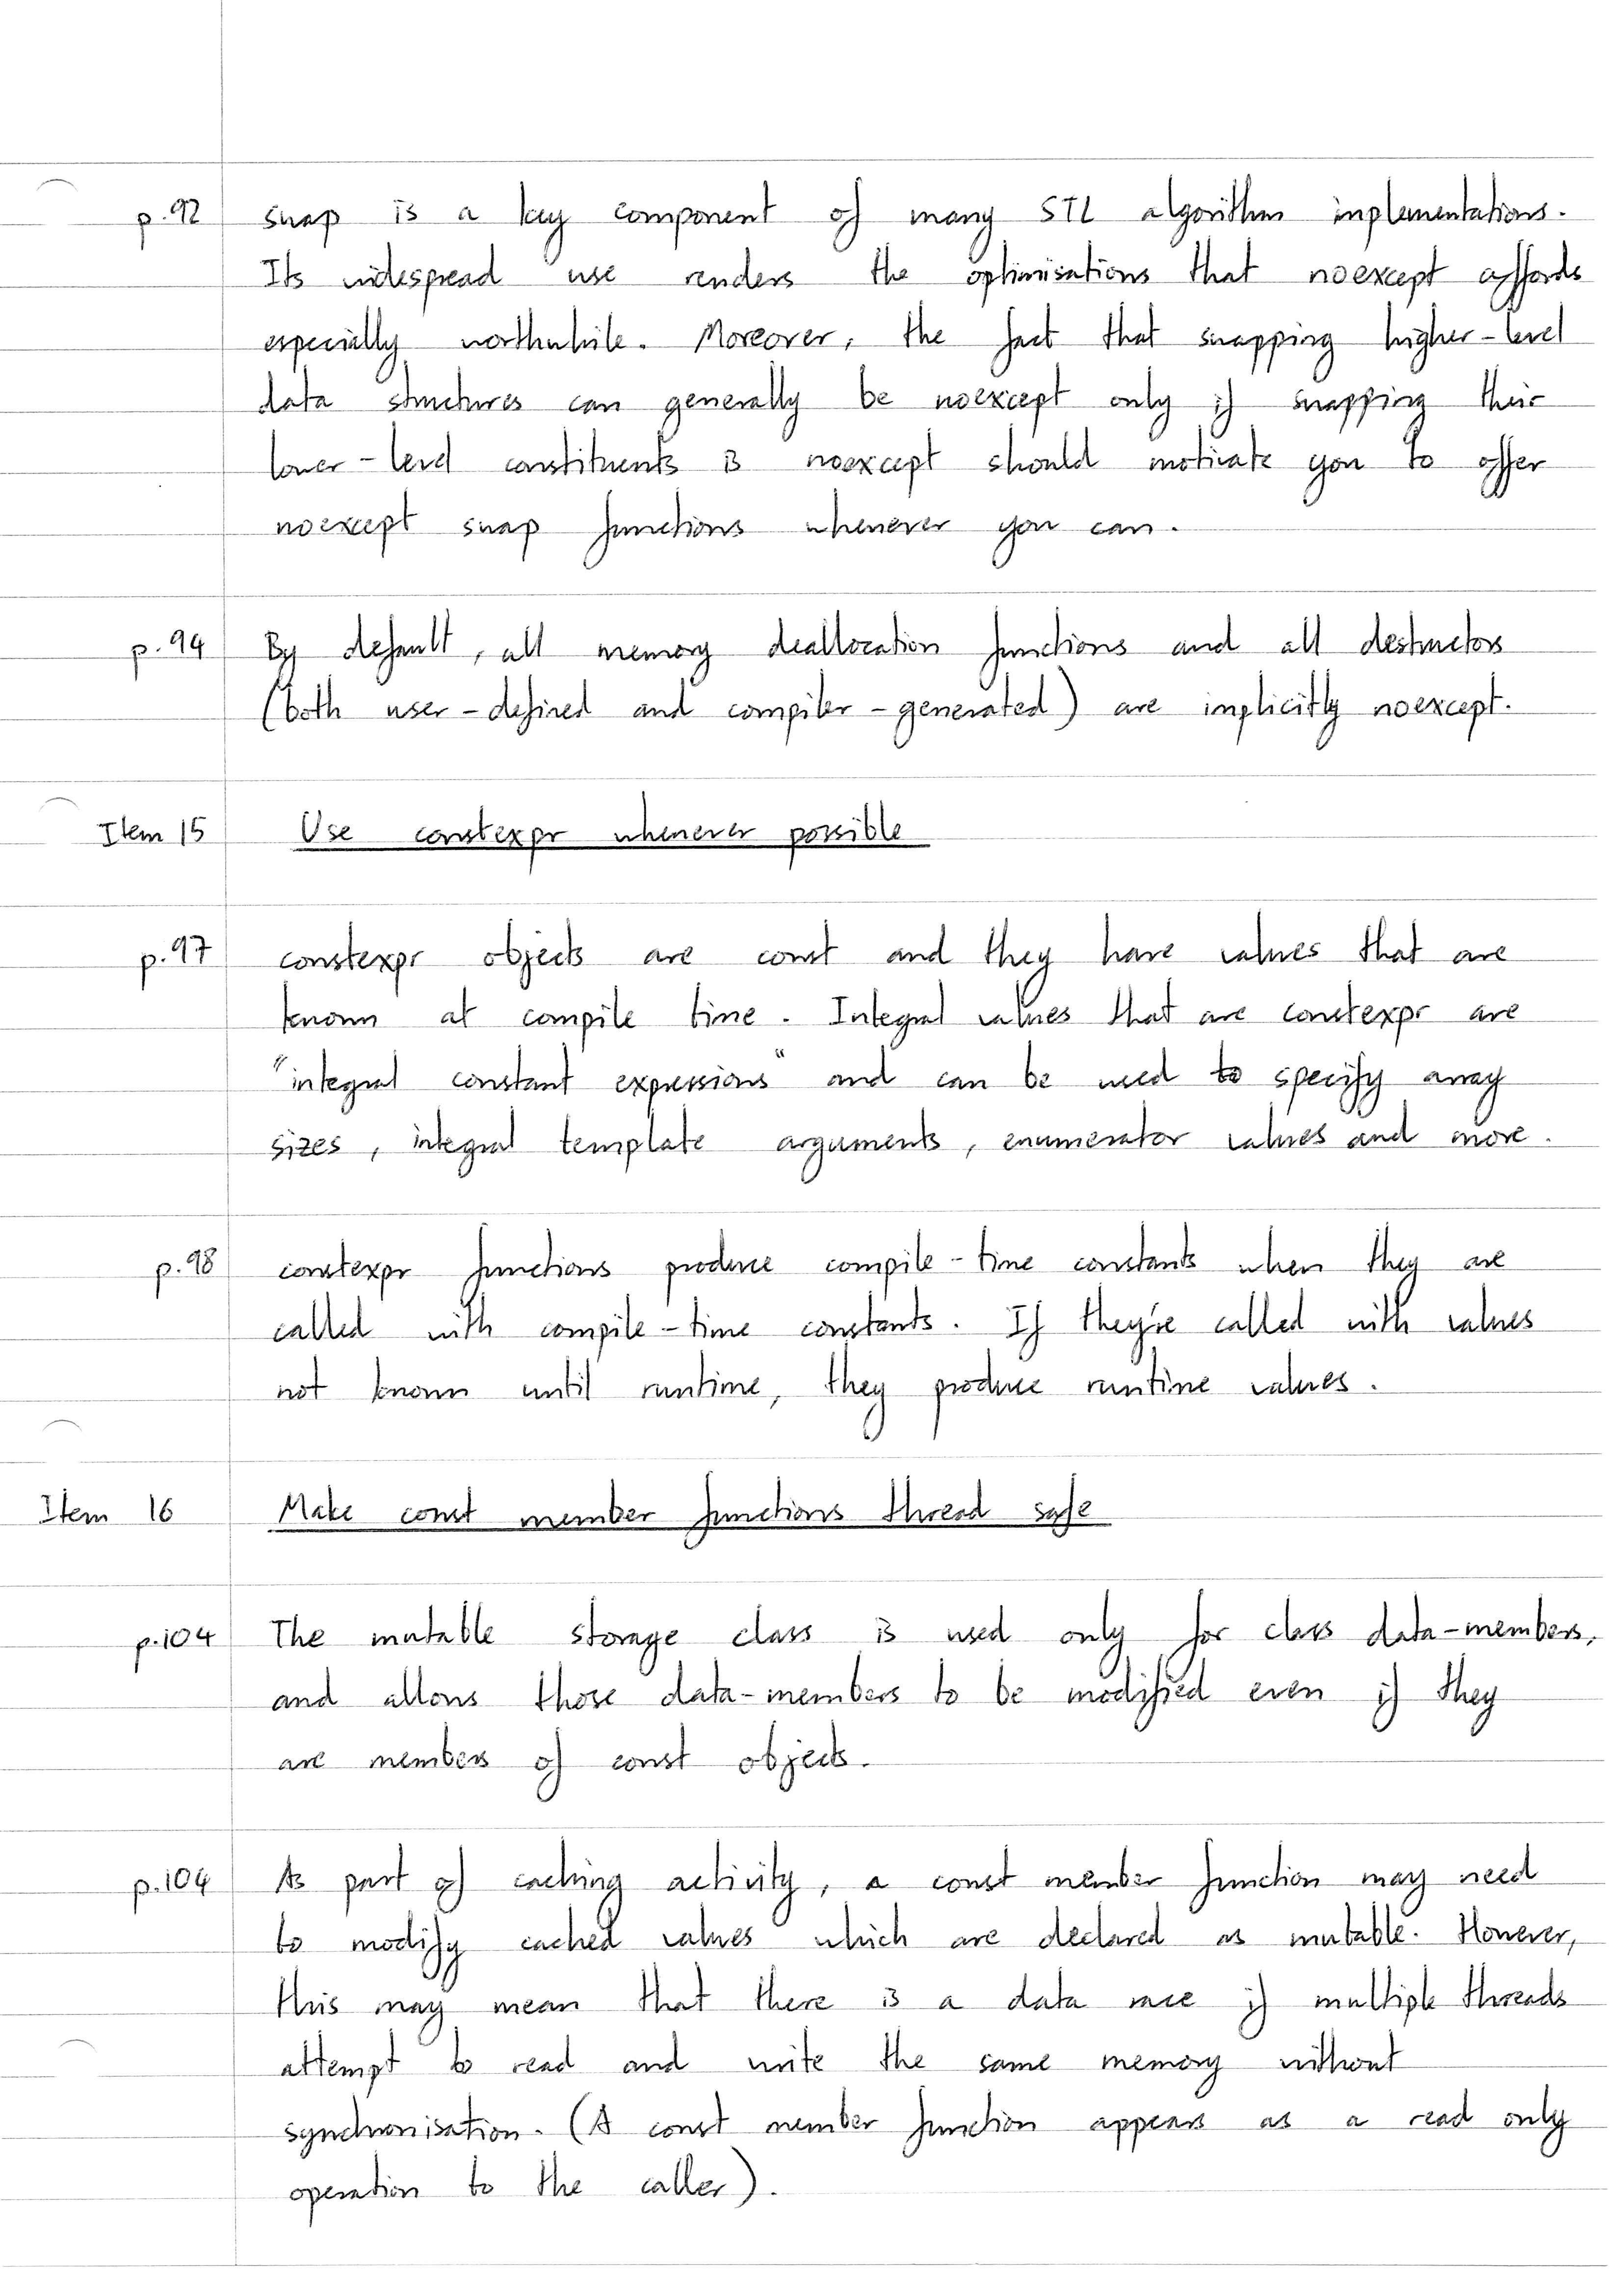 p.92 swap is a key component of many STL algorithm implementations.
Its widespread use renders the optimisations that noexcept affords
especially worthwhile. Moreover, the fact that swapping higher-level
data structures can generally be noexcept only if swapping their
lower-level constituents is noexcept should motivate you to offer
noexcept swap functions whenever you can.
p.94 By default, all memory deallocation functions and all destructors
(both user-defined and compiler-generated) are implicitly noexcept.
Item 15 Use constexpr whenever possible
p.97 constexpr objects are const and they have values that are
known at compile time. Integral values that are constexpr are
"integral constant expressions" and can be used to specify array
sizes, integral template arguments, enumerator values and more.
p.98 constexpr functions produce compile-time constants when they are
called with compile-time constants. If they're called with values
not known until runtime, they produce runtime values.
Item 16 Make const member functions thread safe
p.104 The mutable storage class is used only for class data-members,
and allows those data-members to be modified even if they
are members of const objects.
p.104 As part of caching activity, a const member function may need
to modify cached values which are declared as mutable. However,
this may mean that there is a data race if multiple threads
attempt to read and write the same memory without
synchronisation. (A const member function appears as a read only
operation to the caller).